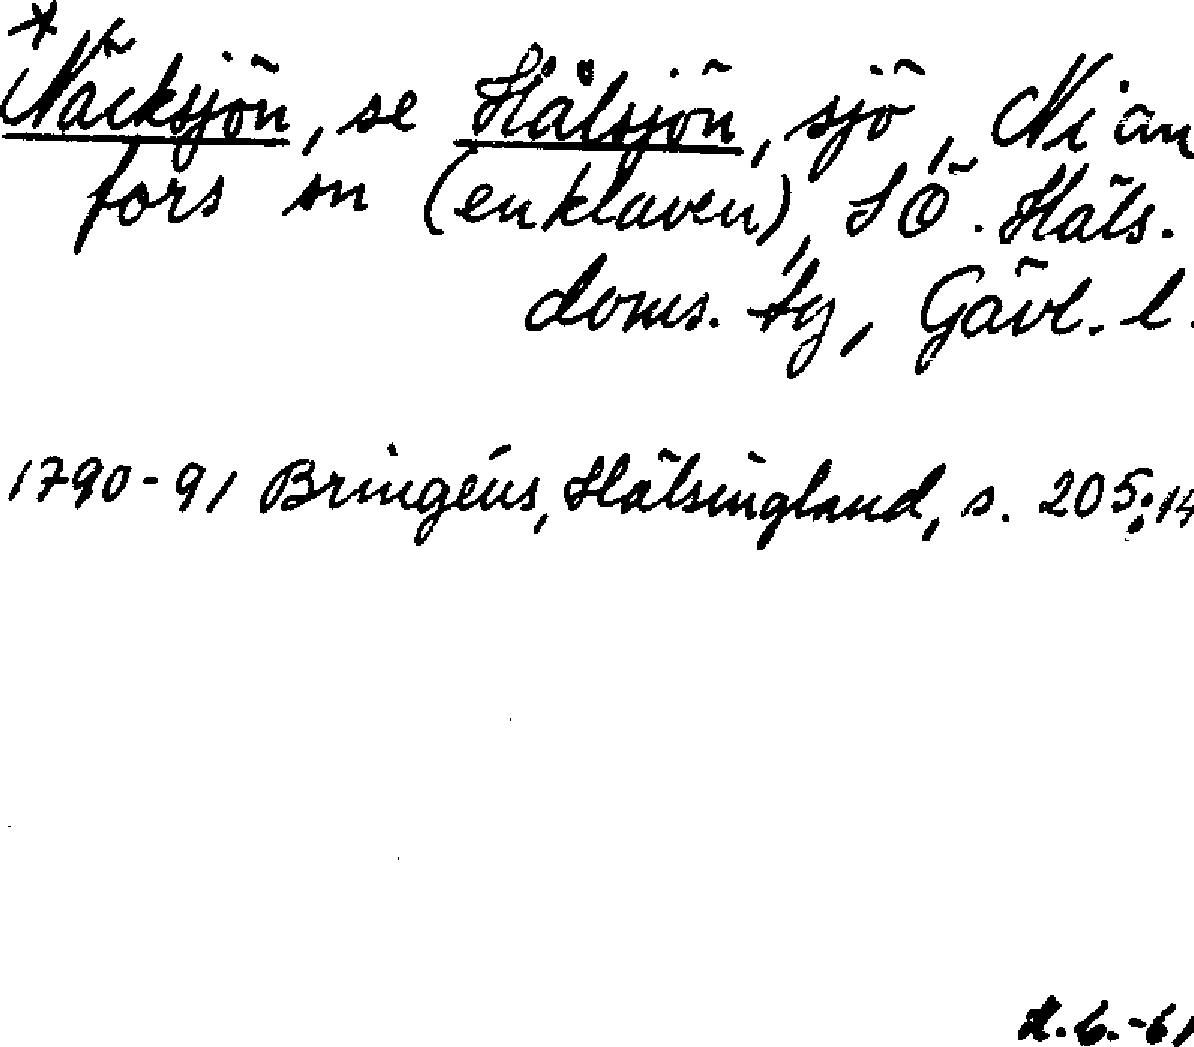 *Näcksjön, se Hålsjön, sjö, Nian
fors sn (enklaven), SÖ. Häls.
doms. tg, Gävl. l.
1790-91 Bringéus, Hälsingland, s. 205:14
H.C.-61